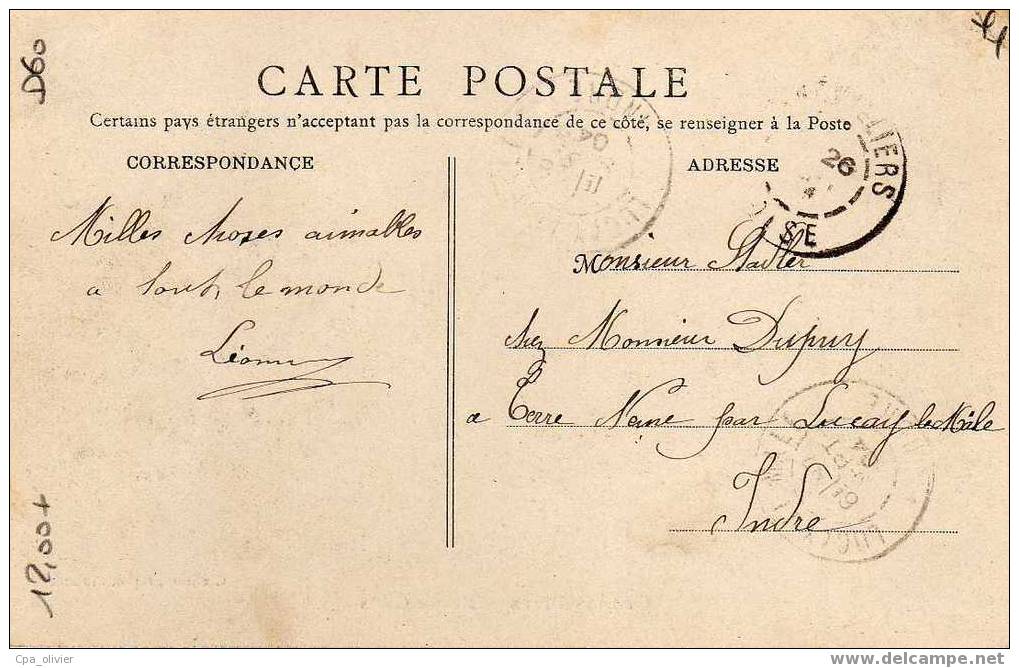 D60
CARTE POSTALE
Certains pays étrangers n'acceptant pas la correspondance de ce côté, se renseigner à la Poste
CORRESPONDANCE
Milles choses aimables
a tout le monde
ADRESSE
26
SE
Monsieur Stadler
chez Monsieur Dupuy
a Terre Neuve par Luçay le Mâle
Indre
12,00+
Cpa_olivier
www.delcampe.net